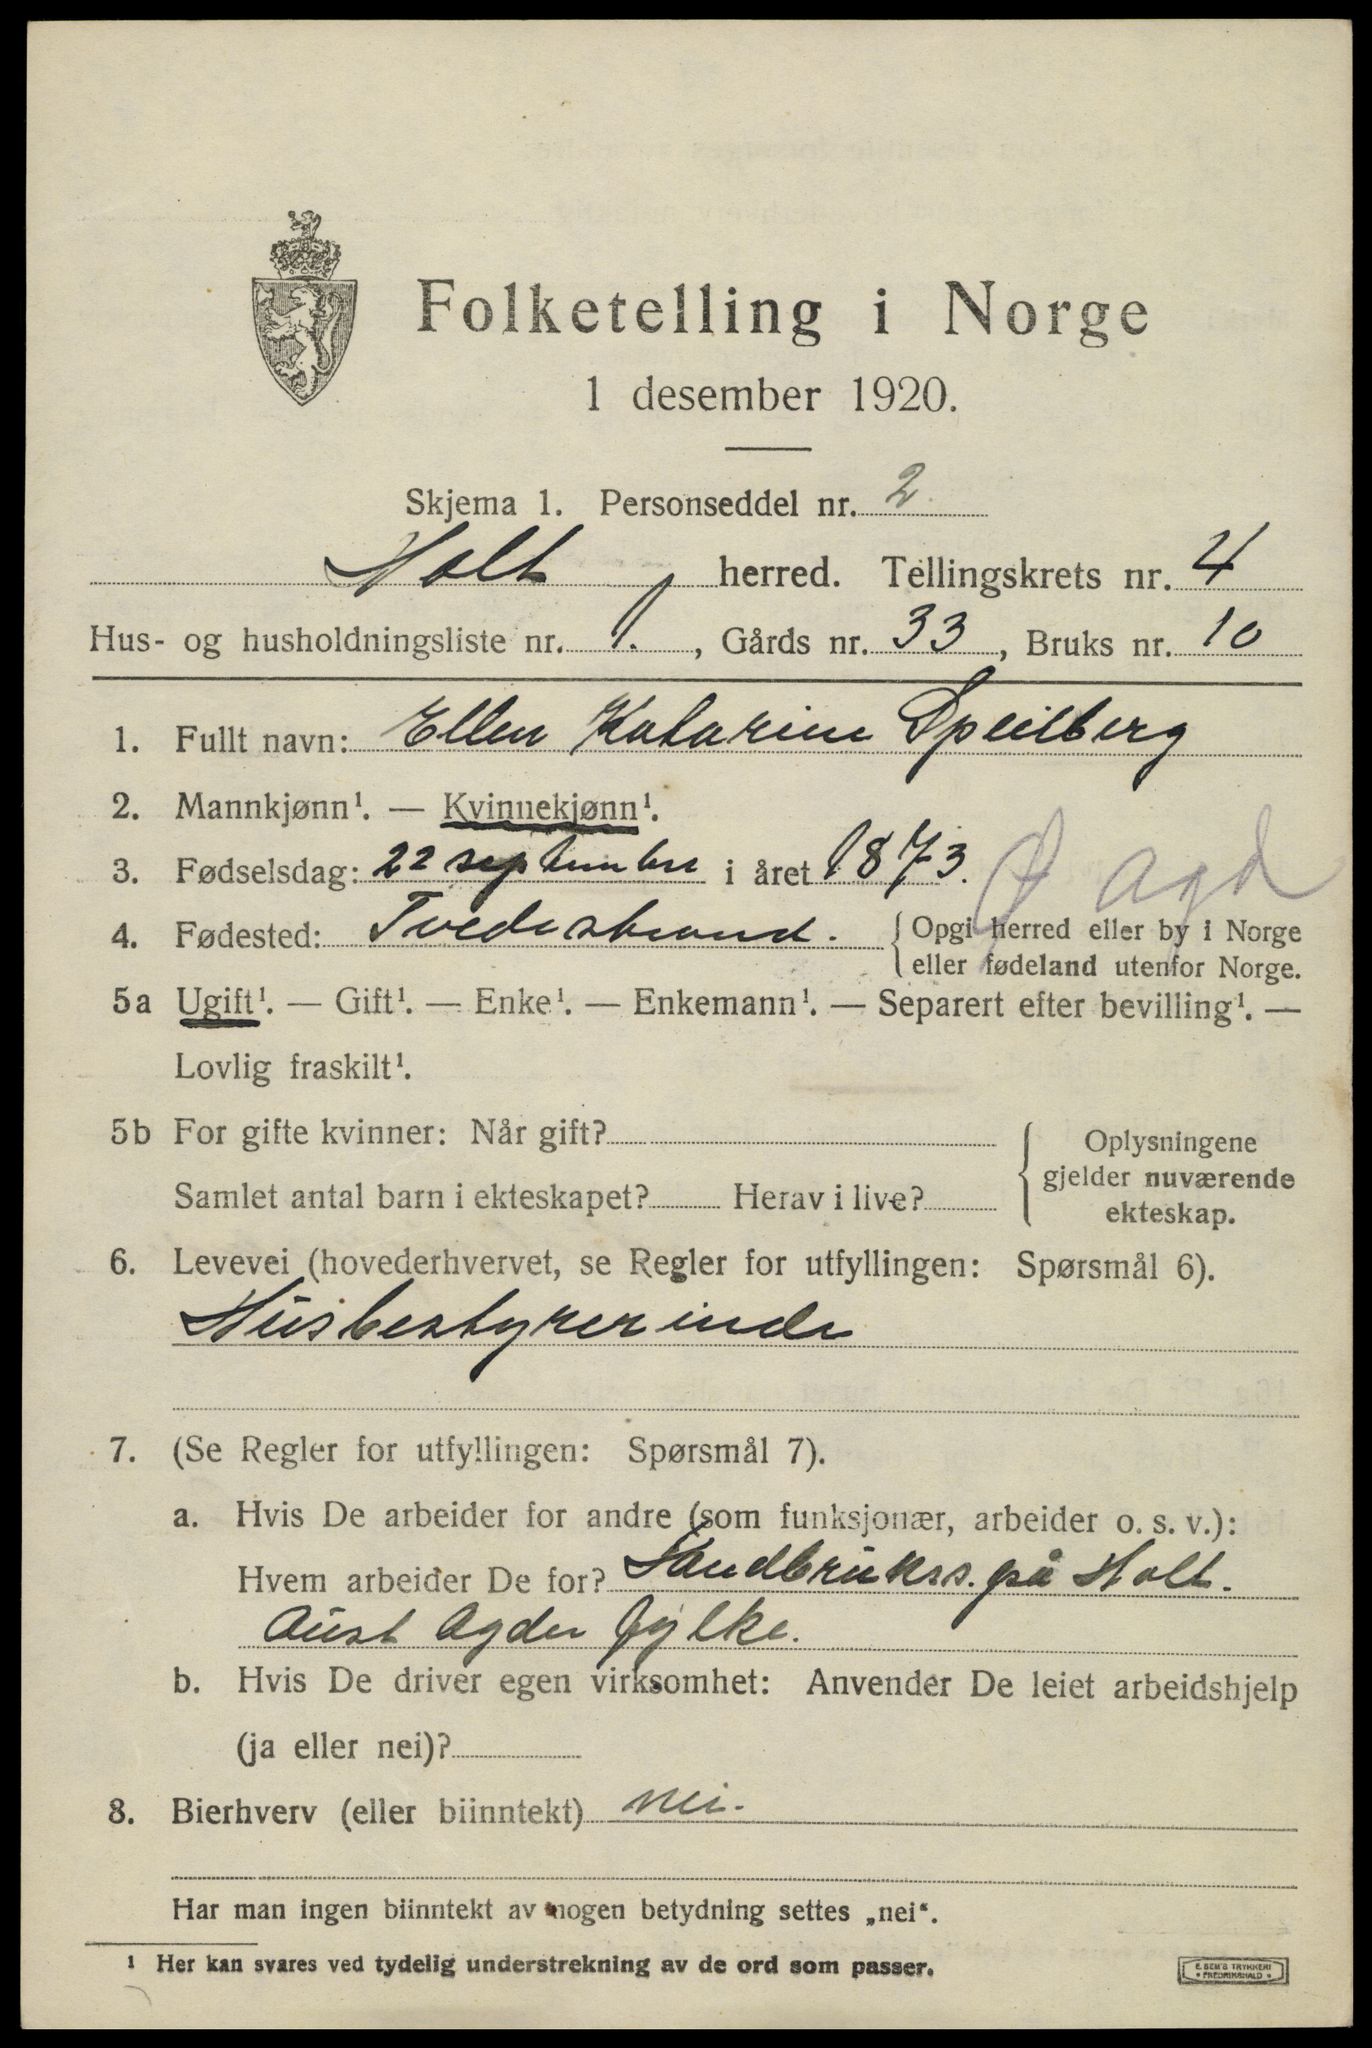 Folketelling i Norge
1 desember 1920.
Skjema 1. Personseddel nr. 2
Holt herred. Tellingskrets nr. 4
Hus- og husholdningsliste nr. 1., Gårds nr. 33, Bruks nr. 10
1. Fullt navn: Ellen Katarine Speilberg
2. Mannkjønn¹. — Kvinnekjønn¹.
3. Fødselsdag: 22 september i året 1873. Ø Agd
4. Fødested: Tvedestrand. { Opgi herred eller by i Norge
eller fødeland utenfor Norge.
5a Ugift¹. — Gift¹. — Enke¹. — Enkemann¹. — Separert efter bevilling¹. —
Lovlig fraskilt¹.
5b For gifte kvinner: Når gift? { Oplysningene
gjelder nuværende
Samlet antal barn i ekteskapet? Herav i live? ekteskap.
6. Levevei (hovederhvervet, se Regler for utfyllingen: Spørsmål 6).
Husbestyrerinde
7. (Se Regler for utfyllingen: Spørsmål 7).
a. Hvis De arbeider for andre (som funksjonær, arbeider o. s. v.):
Hvem arbeider De for? Landbrukss. på Holt.
Aust Agder fylke.
b. Hvis De driver egen virksomhet: Anvender De leiet arbeidshjelp
(ja eller nei)?
8. Bierhverv (eller biinntekt) nei.
Har man ingen biinntekt av nogen betydning settes „nei“.
¹ Her kan svares ved tydelig understrekning av de ord som passer.
E. SEM'S TRYKKERI
• FREDRIKSHALD •